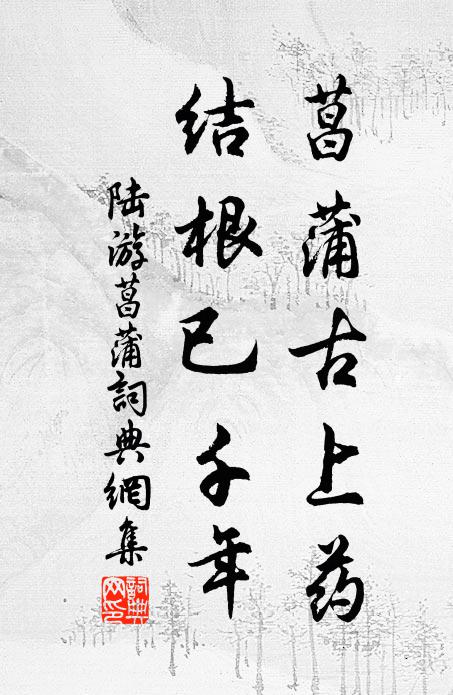 菖蒲古上药
结根已千年
陆游菖蒲詞典網集
詞典网印